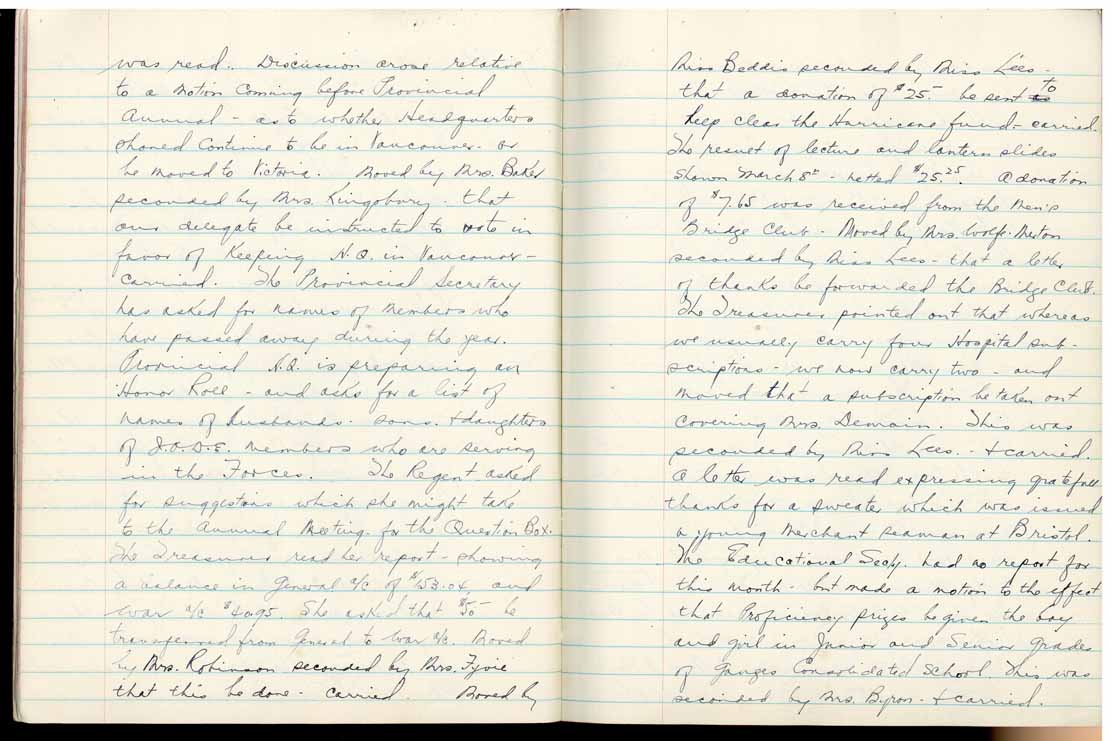 was read. Discussion arose relative
to a motion coming before Provincial
Annual - as to whether Headquarters
should continue to be in Vancouver - or
be moved to Victoria. Moved by Mrs. Baker
seconded by Mrs. Kingsbury - that
our delegate be instructed to vote in
favor of Keeping H.Q. in Vancouver -
carried. The Provincial Secretary
has asked for names of members who
have passed away during the year.
Provincial H.Q. is preparing an
Honor Roll - and asks for a list of
names of husbands - sons - & daughters
of I.O.D.E. members who are serving
in the Forces. The Regent asked
for suggestions which she might take
to the Annual Meeting for the Question Box.
The Treasurer read her report - showing
a balance in General a/c of $153.04 and
War a/c $40.95. She asked that $50 be
transferred from General to War a/c. Moved
by Mrs. Robinson seconded by Mrs. Fyvie
that this be done - carried. Moved by
Miss Beddis seconded by Miss Lees -
that a donation of $25.- be sent to
keep clear the Hurricane fund - carried.
The result of lecture and lantern slides
shown March 8th - netted $25.25. A donation
of $7.65 was received from the Men's
Bridge Club - Moved by Mrs. Wolfe-Merton
seconded by Miss Lees - that a letter
of thanks be forwarded the Bridge Club.
The Treasurer pointed out that whereas
we usually carry four Hospital sub-
scriptions - we now carry two - and
moved that a subscription be taken out
covering Mrs. Demain. This was
seconded by Miss Lees. - & carried.
A letter was read expressing grateful
thanks for a sweater which was issued
a young merchant seaman at Bristol.
The Educational Secty. had no report for
this month - but made a motion to the effect
that Proficiency prizes be given the boy
and girl in Junior and Senior grades
of Ganges Consolidated School. This was
seconded by Mrs. Byron - & carried.